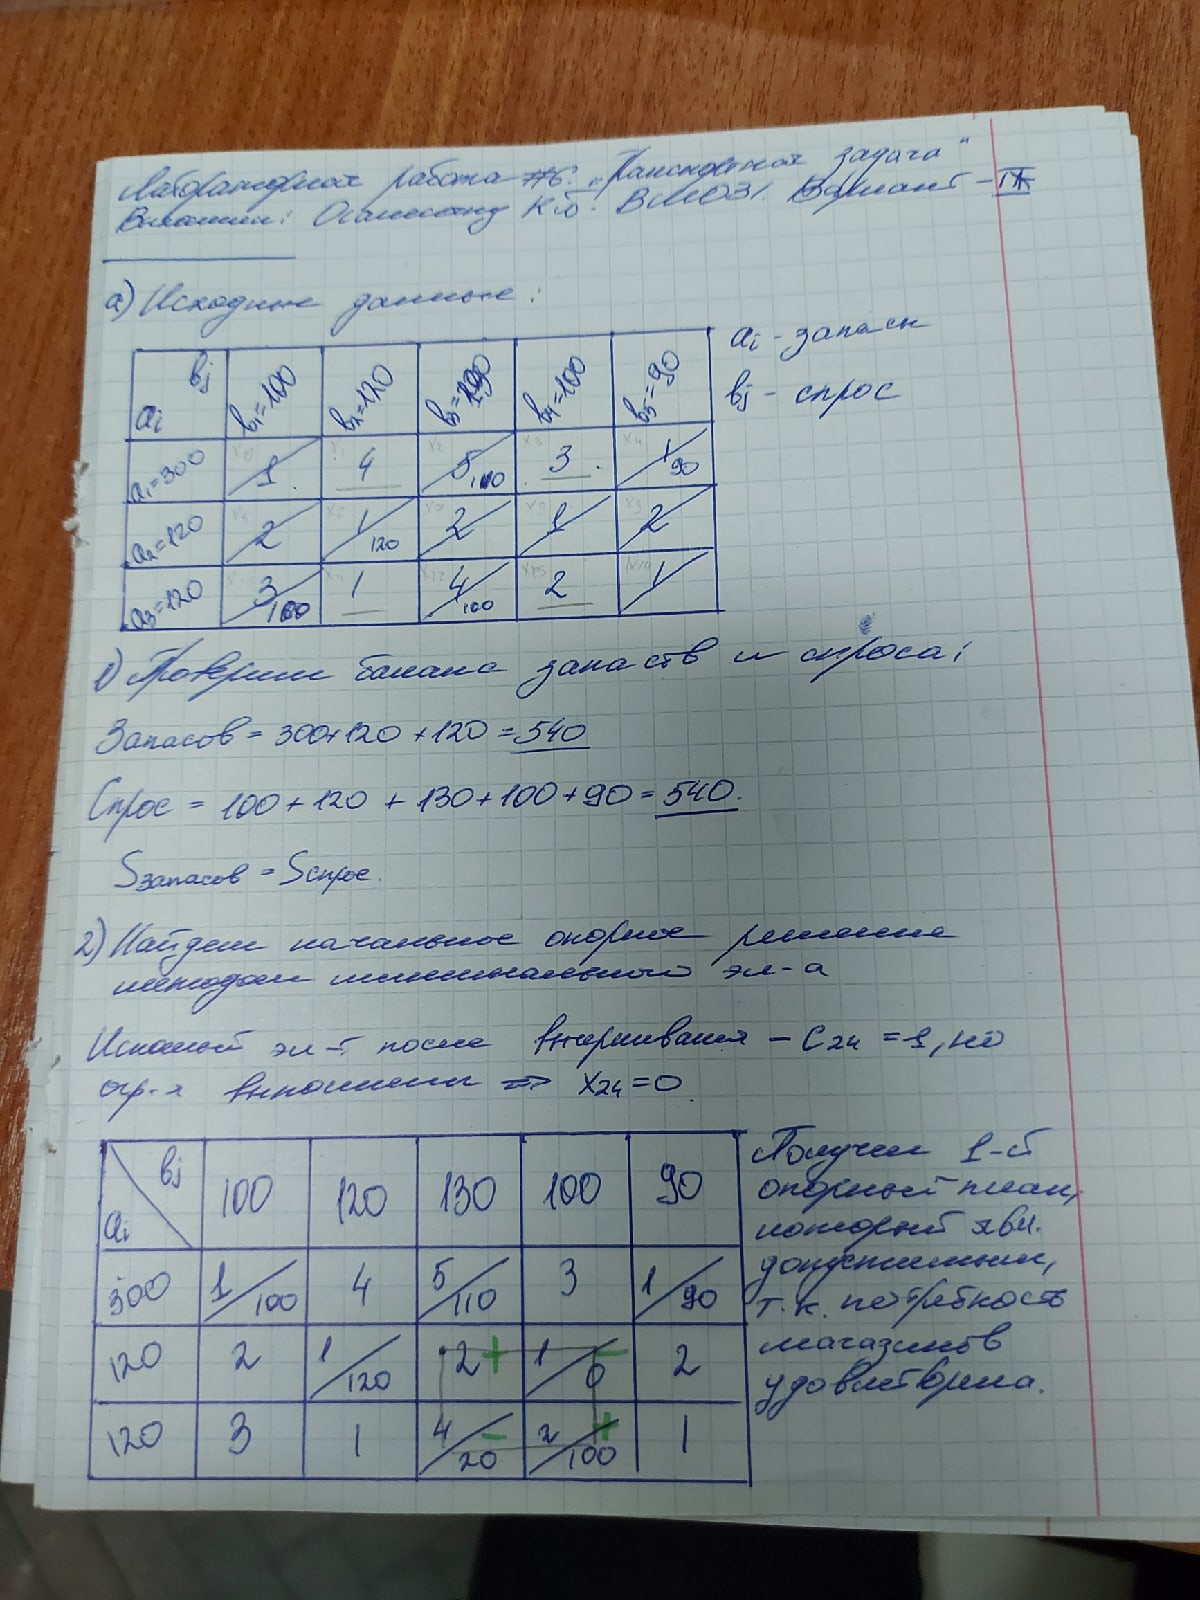 Лабораторная работа №6. "Транспортная задача"
Выполнил: К.Ю. ВМО31. Вариант -
а) Исходные данные:
ai - запасы
bj - спрос
bj
ai
b1=100 b2=120 b3=130 b4=100 b5=90
a1=300 1 4 5/100 3 1/90
a2=120 2 1/120 2 1 2
a3=120 3/100 1 4/100 2 1
1) Проверим баланс запасов и спроса:
Запасов = 300+120+120=540
Спрос = 100+120+130+100+90=540.
Sзапасов = Sспрос.
2) Найдем начальное опорное решение
методом минимального эл-а
Искомый эл-т после вычеркивания - C24 =1, но
огр-я выполнены => X24=0
bj
ai
100 120 130 100 90
300 1/100 4 5/110 3 1/90
120 2 1/120 2+ 1/0 - 2
120 3 1 4/20 - 2/100 + 1
Получен 1-й
опорный план,
который явл.
допустимым,
т.к. потребность
магазинов
удовлетворена.